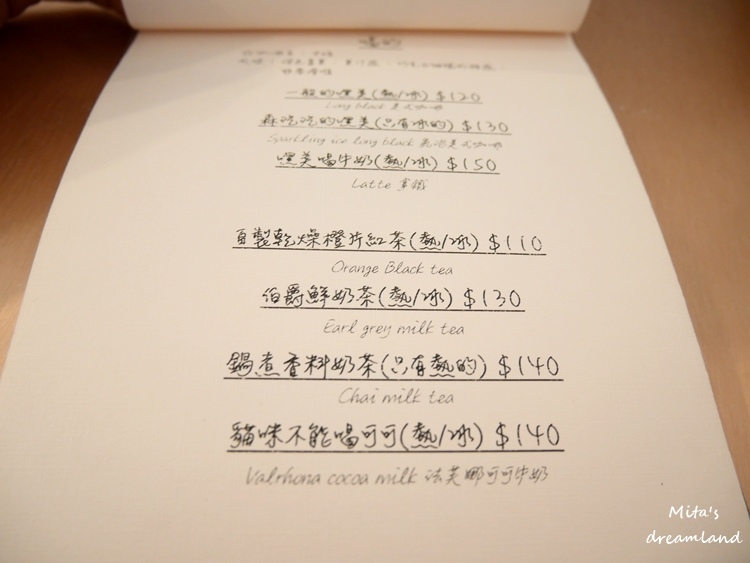 喝的
一般的嘿美(熱/冰) $120
Long black 美式咖啡
森七七的嘿美(只有冰的) $130
Sparkling ice long black 氣泡美式咖啡
嘿美喝牛奶(熱/冰) $150
Latte 拿鐵
自製乾燥橙片紅茶(熱/冰) $110
Orange Black tea
伯爵鮮奶茶(熱/冰) $130
Earl grey milk tea
鍋煮香料奶茶(只有熱的) $140
Chai milk tea
貓咪不能喝可可(熱/冰) $140
Valrhona cocoa milk 法芙娜可可牛奶
Mita's
dreamland